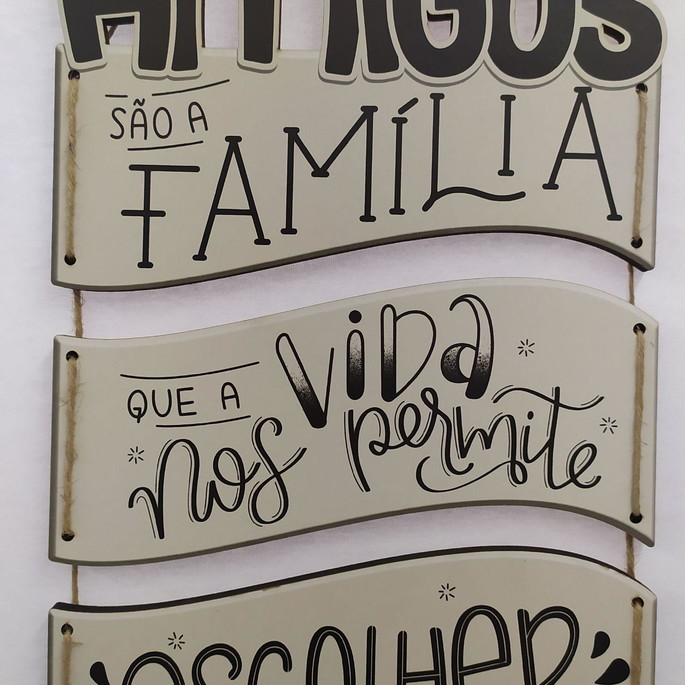 AMIGOS
SÃO A
FAMÍLIA
QUE A VIDA
nos permite
ESCOLHER